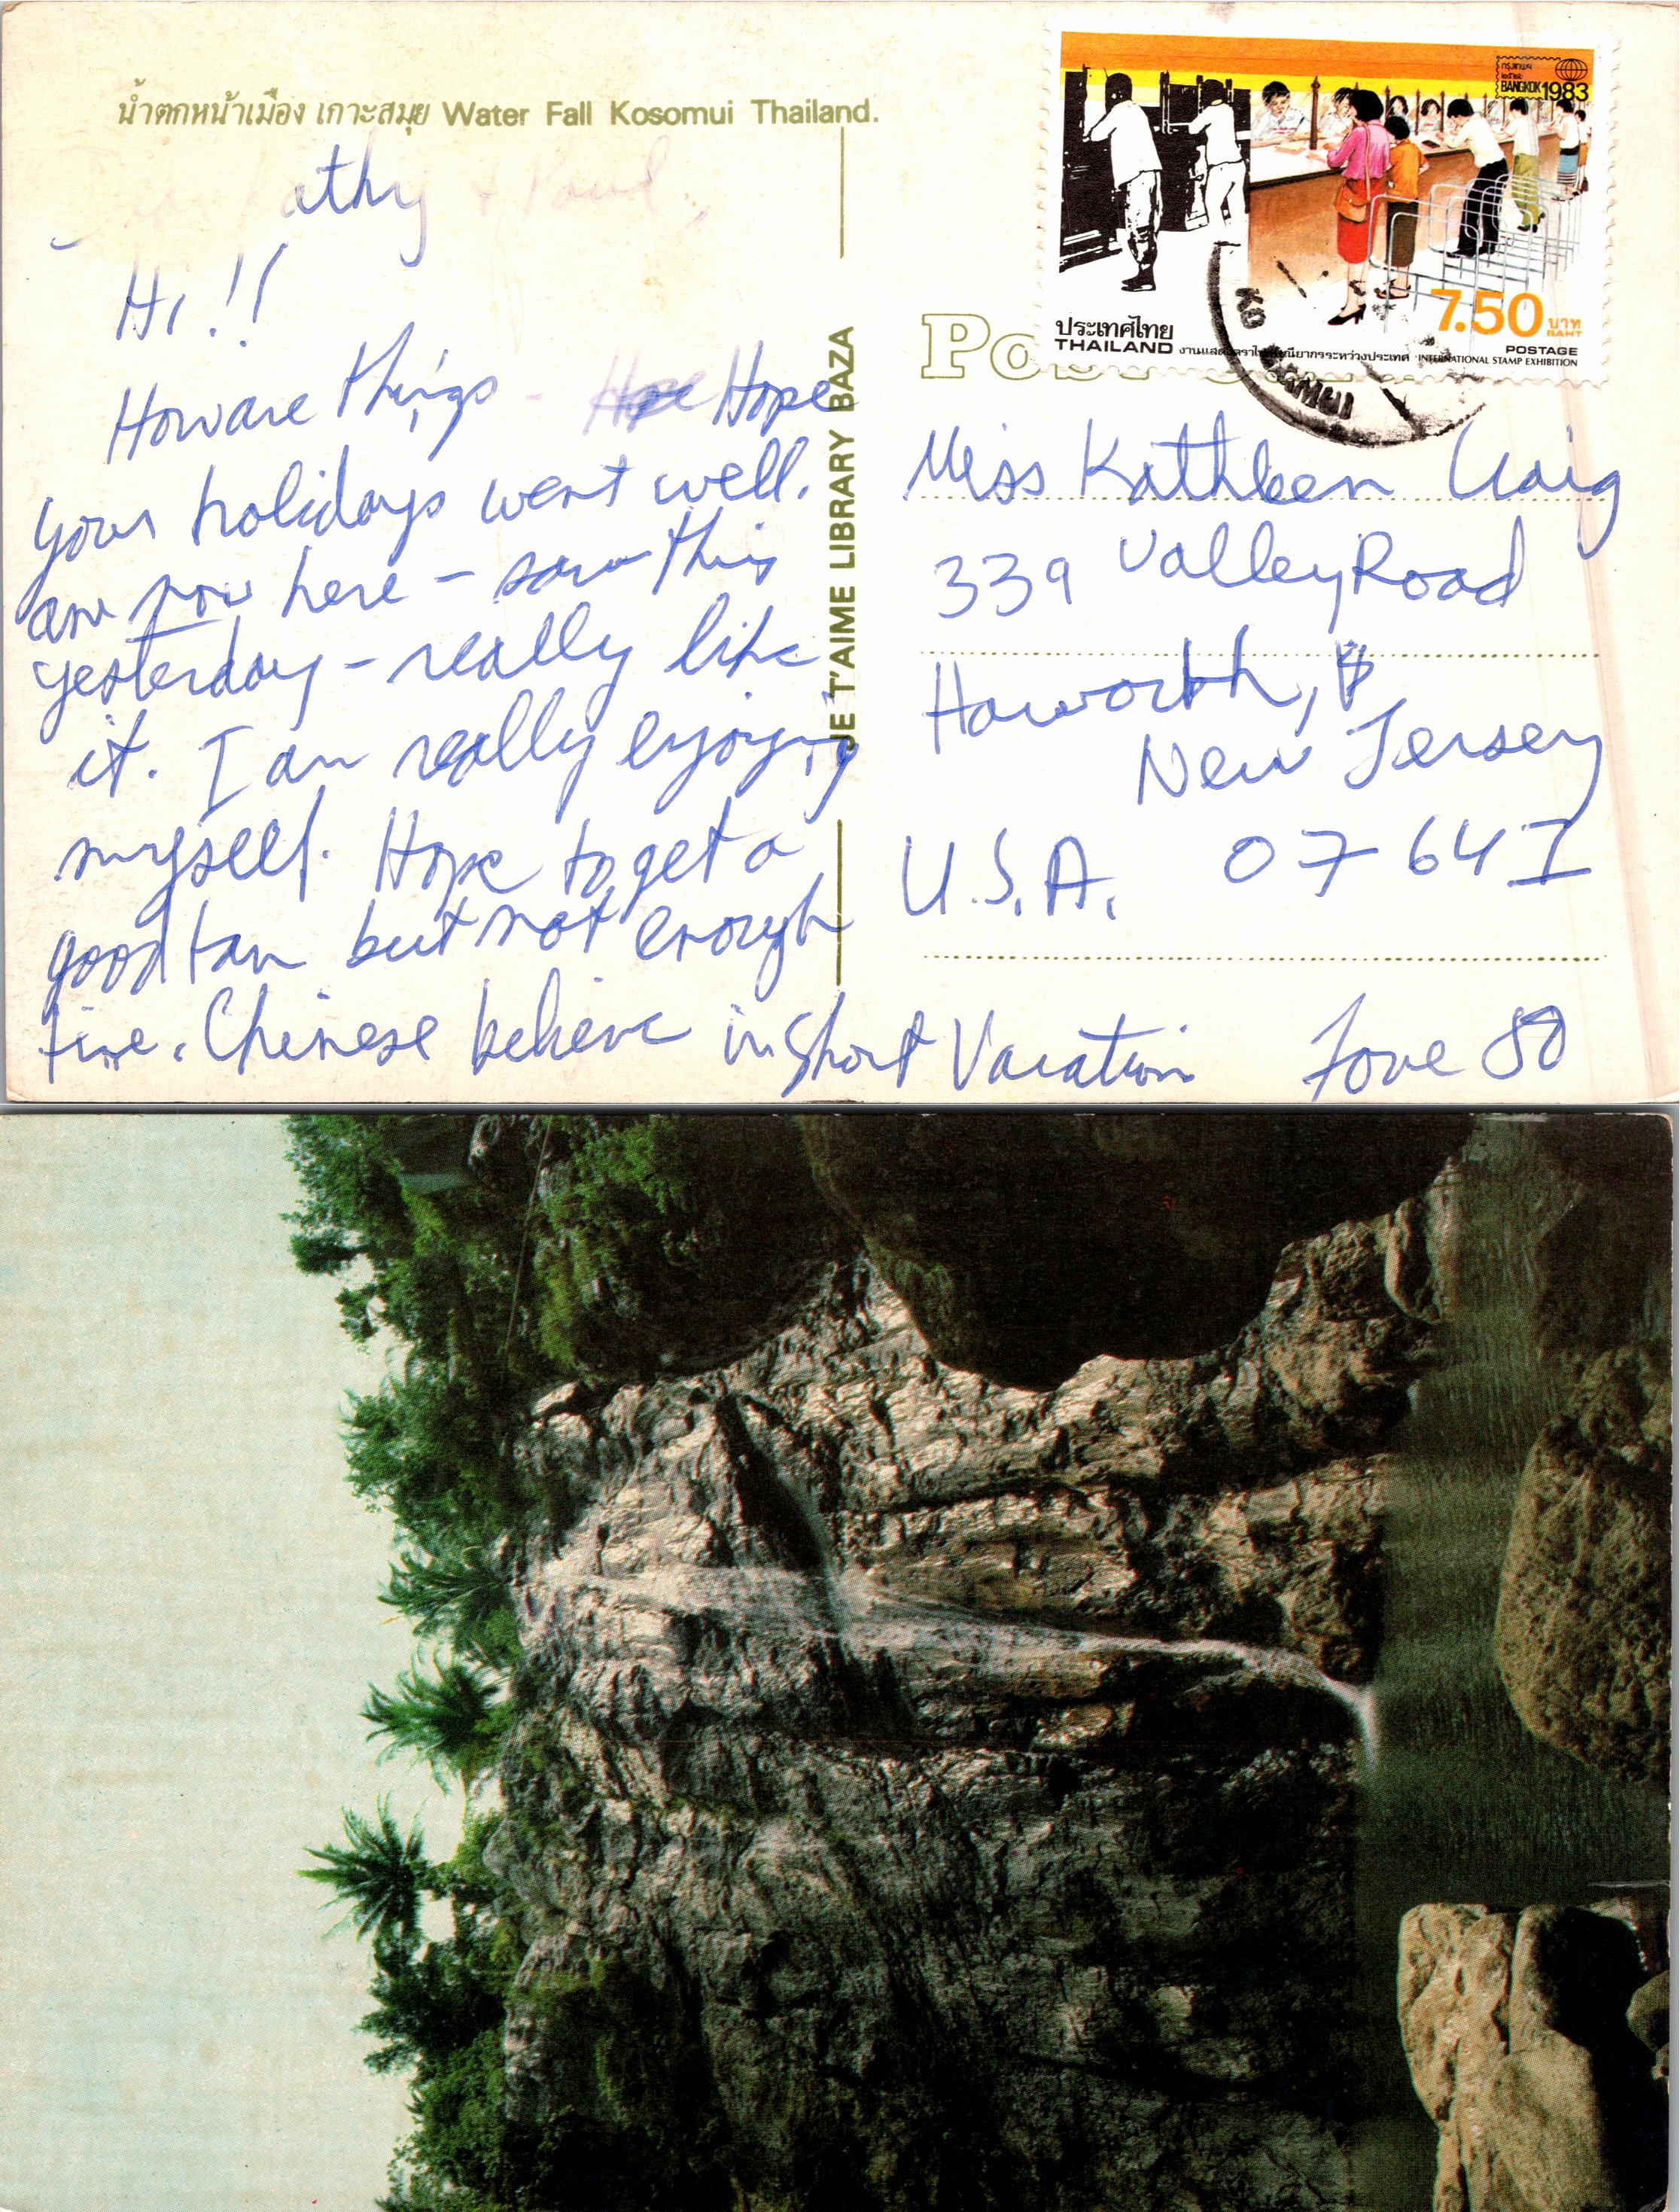 น้ำตกหน้าเมือง เกาะสมุย Water Fall Kosomui Thailand.
Dear Kathy + Paul,
Hi!!
How are things - Hope Hope
your holidays went well.
am now here - saw this
yesterday - really like
it. I am really enjoying
myself. Hope to get a
good tan but not enough
time. Chinese believe in short Vacation Love
JE T'AIME LIBRARY BAZA
กรุงเทพฯ
๒๕๒๖
BANGKOK 1983
7.50 บาท
BAHT
ประเทศไทย
THAILAND
POSTAGE
INTERNATIONAL STAMP EXHIBITION
KO SAMUI
Post Card
Miss Kathleen Craig
339 Valley Road
Haworth,
New Jersey
U.S.A. 07641